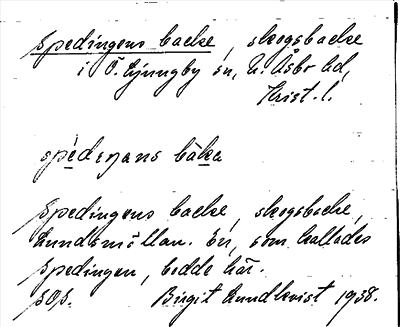 Spedingens backe, skogsbacke
i Ö. Ljungby sn, N. Åsbo hd,
Krist. l.
spedeŋans bäka
Spedingens backe, skogsbacke,
Lundsmöllan. En, som kallades
Spedingen, bodde här.
SOS. Birgit Lundkvist 1938.